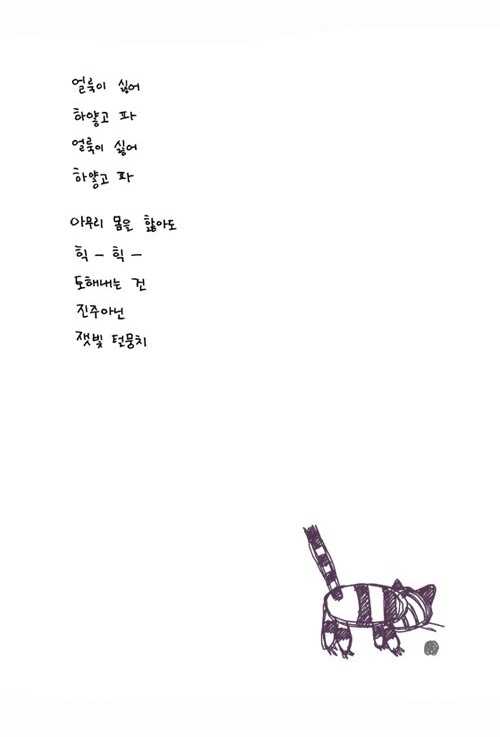 얼룩이 싫어
하얗고 파
얼룩이 싫어
하얗고 파
아무리 몸을 핥아도
힉 – 힉 –
토해내는 건
진주아닌
잿빛 털뭉치